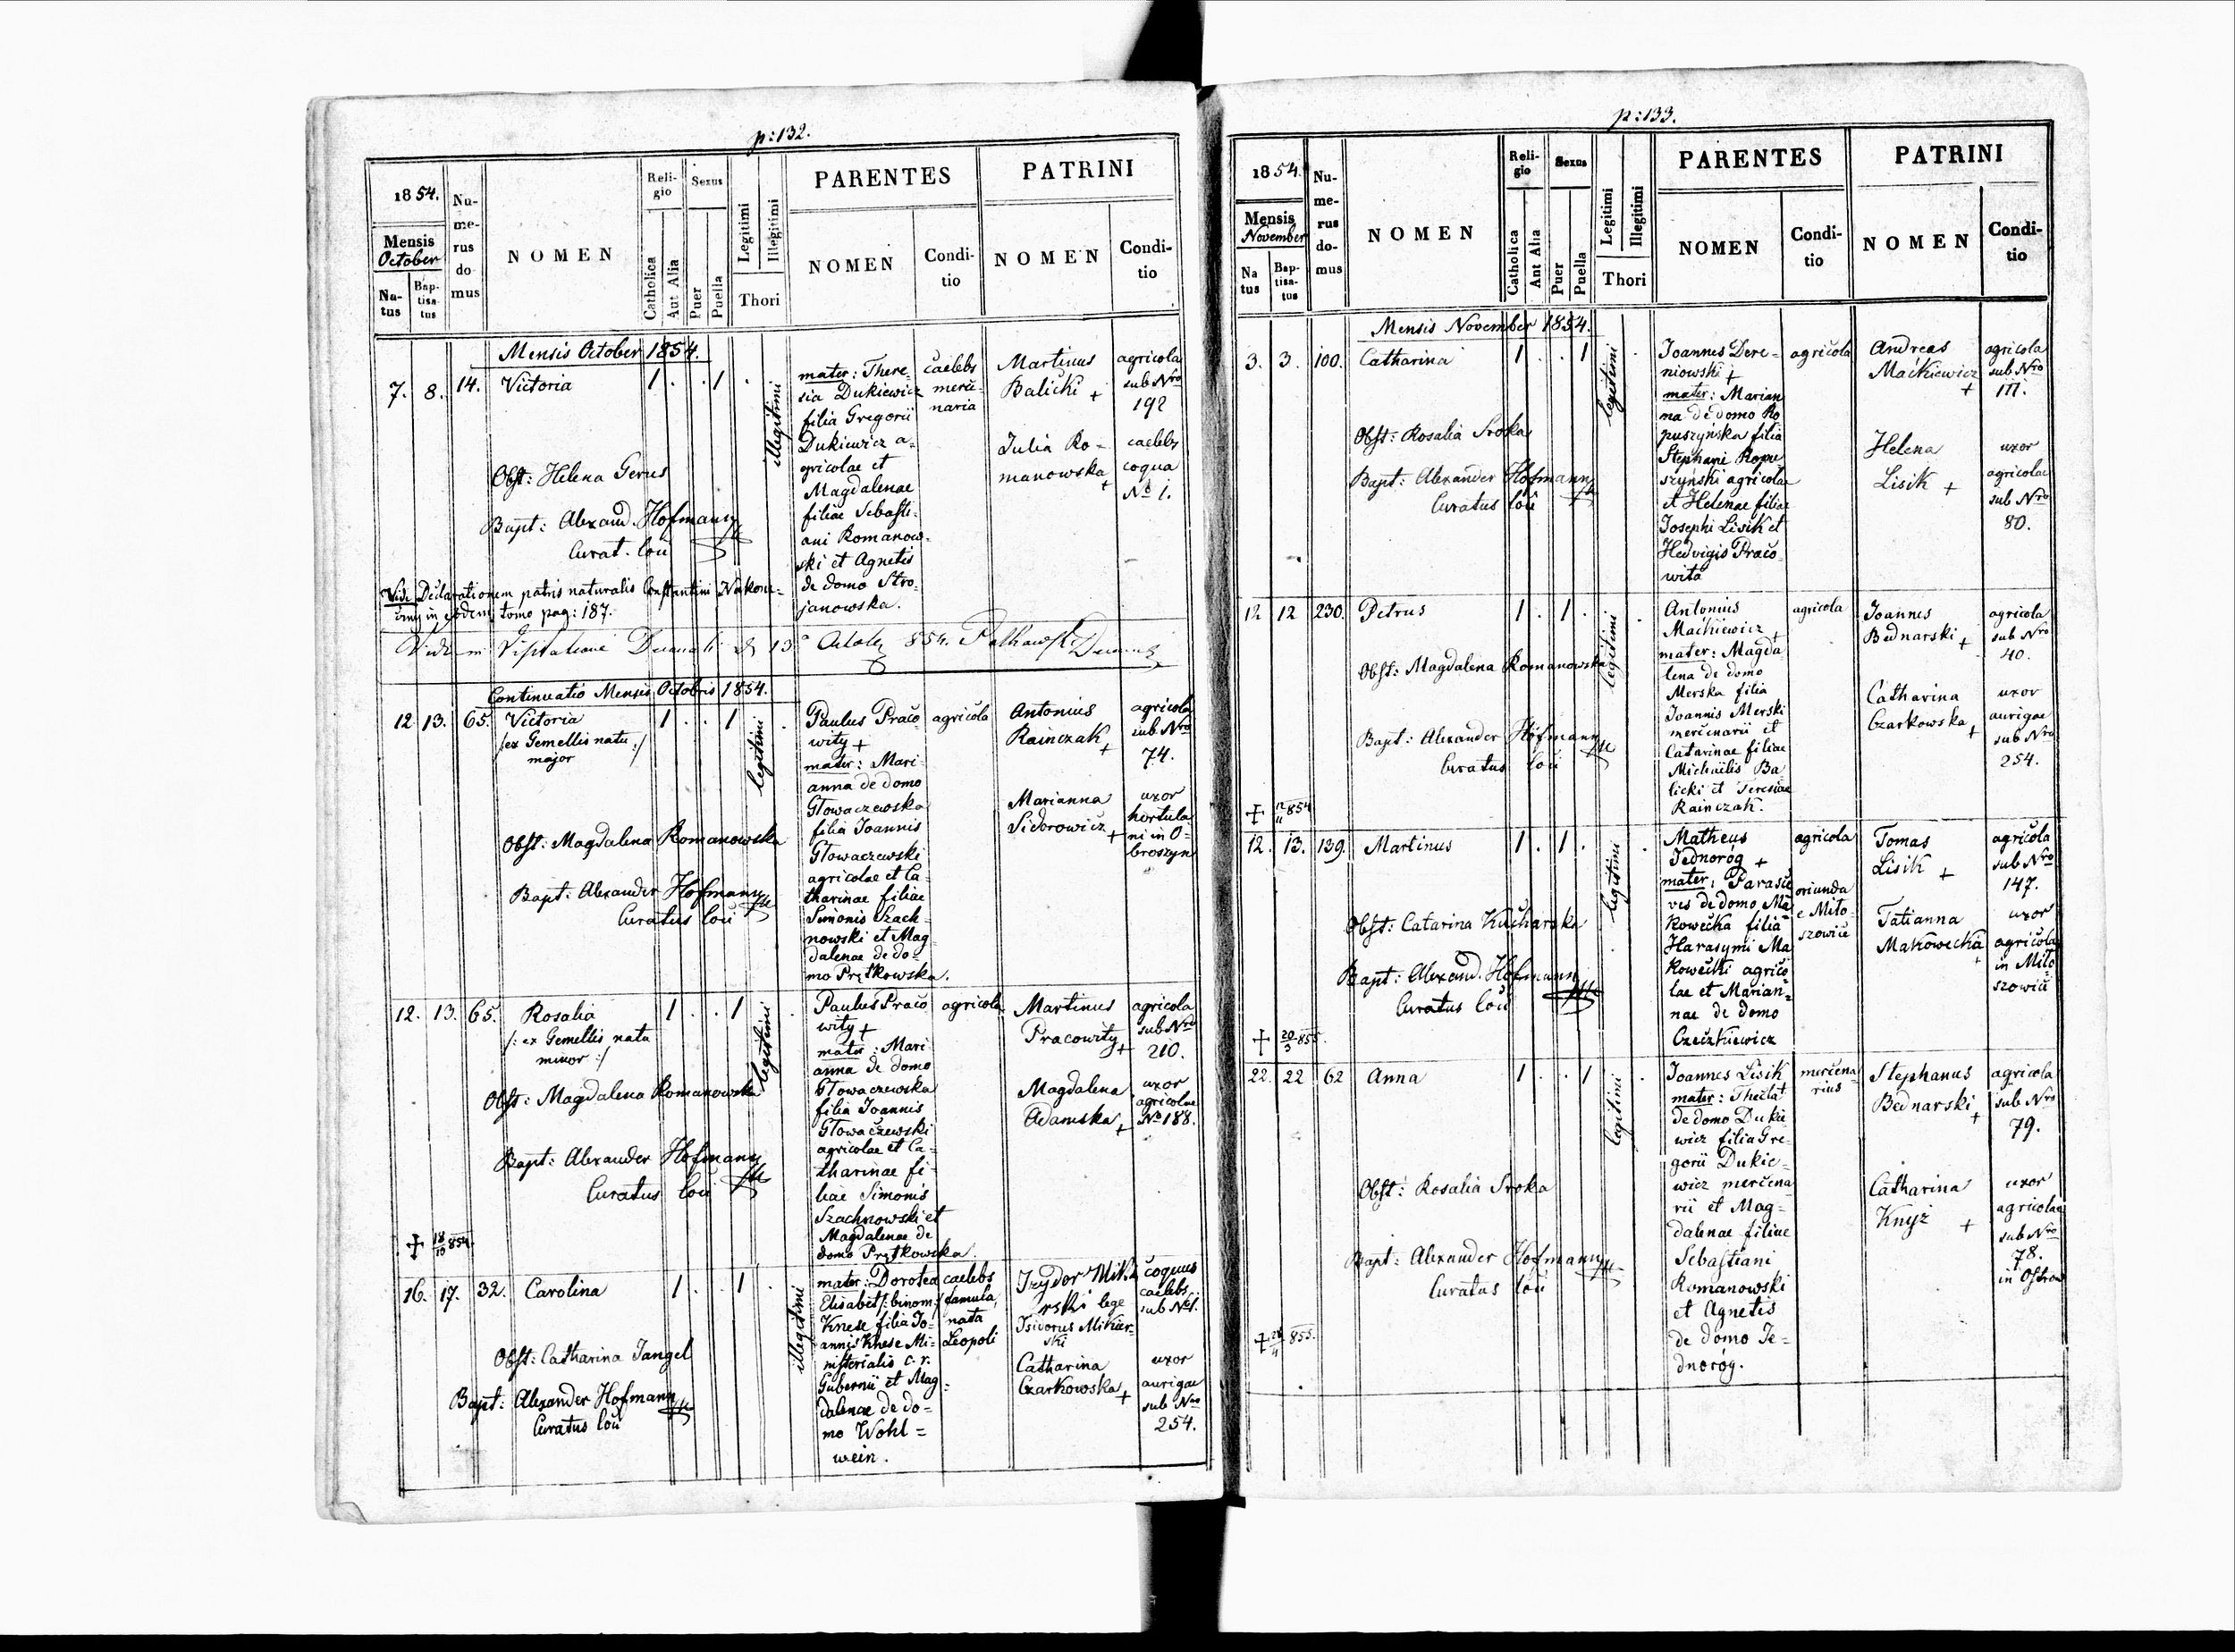 p: 132.
1854.
Mensis
October
Na-
tus
Bap-
tisa-
tus
Nu-
me-
rus
do-
mus
NOMEN
Reli-
gio
Catholica
Aut Alia
Sexus
Puer
Puella
Legitimi
Illegitimi
Thori
PARENTES
NOMEN
Condi-
tio
PATRINI
NOMEN
Condi-
tio
Mensis October 1854.
7. 8. 14. Victoria 1 . . 1 .
illegitimi
Obst: Helena Gerus
Bapt: Alexand. Hofmann
Curat. loci
mater: There-
sia Dukiewicz
filia Gregorii
Dukiewicz a-
gricolae et
Magdalenae
filiae Sebasti-
ani Romanow-
ski et Agnetis
de domo Stro-
janowska.
caelebs
merce-
naria
Martinus
Balicki +
agricola
sub Nro
192
Julia Ro-
manowska +
caelebs
coqua
No 1.
Vide Declarationem patris naturalis Constantini
in eodem tomo pag: 187.
854.
Continuatio Mensis Octobris 1854.
12 13. 65. Victoria 1 . . 1 .
/:ex Gemellis natu
major :/
legitimi
Obst: Magdalena Romanowska
Bapt: Alexander Hofmann
Curatus loci
Paulus Praco
wity +
mater: Mari
anna de domo
Głowaczewska
filia Joannis
Głowaczewski
agricolae et Ca-
tharinae filiae
Simonis Szach-
nowski et Mag
dalenae de do-
mo Prętkowska.
agricola
Antonius
Rainczak +
agricola
sub Nro
74.
Marianna
Sidorowicz +
uxor
hortula
ni in O-
broszyn
12. 13. 65. Rosalia 1 . . 1 .
/: ex Gemellis natu
minor :/
legitimi
Obst: Magdalena Romanowska
Bapt: Alexander Hofmann
Curatus loci
+ 18/10 854.
Paulus Praco
wity +
mater: Mari
anna de domo
Głowaczewska
filia Joannis
Głowaczewski
agricolae et Ca-
tharinae fi-
liae Simonis
Szachnowski et
Magdalenae de
domo Prętkowska.
agricola
Martinus
Pracowity +
agricola
sub Nro
210.
Magdalena
Adamska +
uxor
agricolae
No 188.
16. 17. 32. Carolina 1 . 1 .
illegitimi
Obst: Catharina Jangel
Bapt: Alexander Hofmann
Curatus loci
mater: Dorotea
Elisabet /:binom:/
Knese filia Jo-
annis Knese Mi-
nisterialis c. r.
Gubernii et Mag-
dalenae de do-
mo Wohl=
wein.
caelebs
famula,
nata
Leopoli
Izydor Mika
rski lege
Isidorus Mikar-
ski
coquus
caelebs
sub No 1.
Catharina
Czarkowska +
uxor
aurigae
sub Nro
254.
p: 133.
1854.
Mensis
November
Na
tus
Bap-
tisa-
tus
Nu-
me-
rus
do-
mus
NOMEN
Reli-
gio
Catholica
Aut Alia
Sexus
Puer
Puella
Legitimi
Illegitimi
Thori
PARENTES
NOMEN
Condi-
tio
PATRINI
NOMEN
Condi-
tio
Mensis November 1854.
3. 3. 100. Catharina 1 . . 1 .
legitimi
Obst: Rosalia Sroka
Bapt: Alexander Hofmann
Curatus loci
Joannes Dere-
niowski +
mater: Marian
na de domo Ro
puszyńska filia
Stephani Ropu
szyński agricolae
et Helenae filiae
Josephi Lisik et
Hedvigis Praco
wita
agricola
Andreas
Mackiewicz +
agricola
sub Nro
111.
Helena
Lisik +
uxor
agricolae
sub Nro
80.
12 12 230. Petrus 1 . 1 .
legitimi
Obst: Magdalena Romanowska
Bapt: Alexander Hofmann
Curatus loci
+ 12/11 854
Antonius
Mackiewicz +
mater: Magda
lena de domo
Merska filia
Joannis Merski
mercenarii et
Catarinae filiae
Michaelis Ba
licki et Teresiae
Rainczak.
agricola
Joannes
Bednarski +
agricola
sub Nro
40.
Catharina
Czarkowska +
uxor
aurigae
sub Nro
254.
12. 13. 139. Martinus 1 . 1 .
legitimi
Obst: Catarina Kucharska
Bapt: Alexand. Hofmann
Curatus loci
+ 20/3 855.
Matheus
Jednoróg +
mater: Parasce
ves de domo Ma
kowecka filia
Harasymi Ma
kowecki agrico
lae et Marian=
nae de domo
Czeczkiewicz
agricola
oriunda
e Miło-
szowice
Tomas
Lisik +
agricola
sub Nro
147.
Tatianna
Makowecka +
uxor
agricolae
in Miło
szowice
22. 22 62 Anna 1 . . 1 .
legitimi
Obst: Rosalia Sroka
Bapt: Alexander Hofmann
Curatus loci
855.
Joannes Lisik
mater: Thecla
de domo Dukie
wicz filia Gre-
gorii Dukie-
wicz mercena
rii et Mag=
dalenae filiae
Sebastiani
Romanowski
et Agnetis
de domo Je-
dnoróg.
mercena-
rius
Stephanus
Bednarski +
agricola
sub Nro
79.
Catharina
Knyż +
uxor
agricolae
sub Nro
78.
in Ostrow